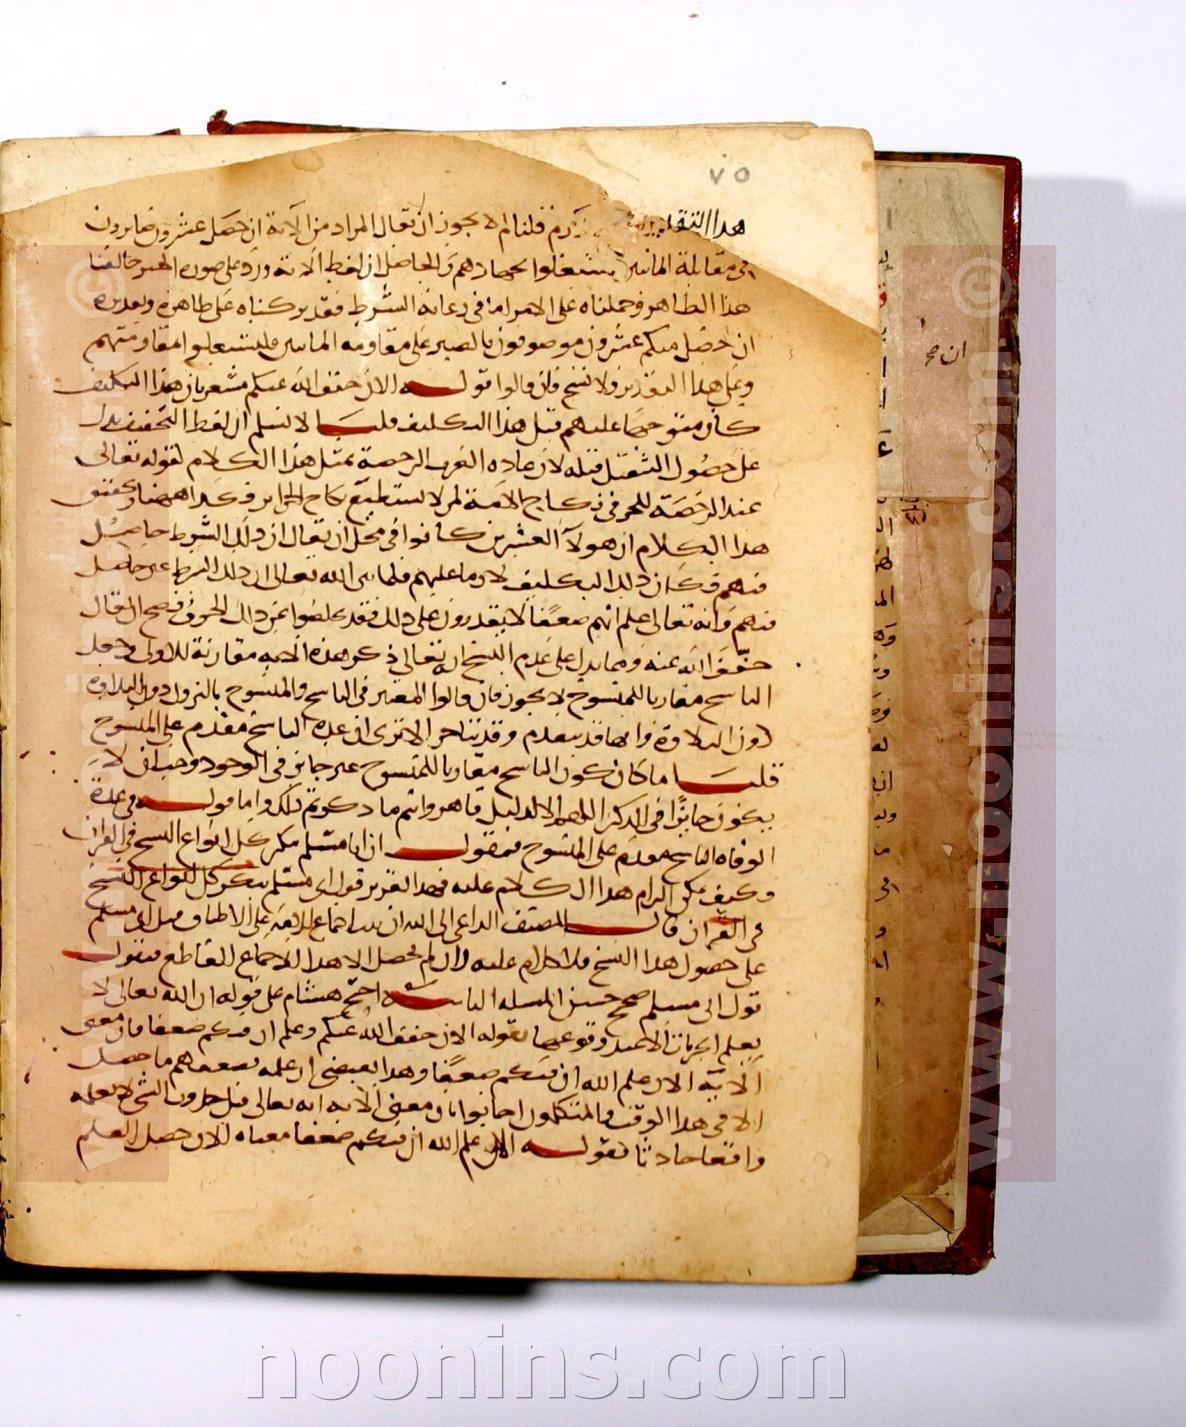 ٧٥
هذا التقدير فلنا لم لا يجوز ان يقال المراد من الآية ان حصل عشرون صابرون
في مقابلة المائتين فليشتغلوا بجهادهم والحاصل ان لفظ الآية ورد على صورة الخبر خالفنا
هذا الظاهر وحملناه على الامر اما في رعاية الشرط فقد تركناه على ظاهره وتقديره
ان حصل منكم عشرون موصوفون بالصبر على مقاومة المائتين فليشتغلوا بمقاومتهم
وعلى هذا التقدير فلا نسخ فان قالوا قوله الان خفف الله عنكم مشعر بان هذا التكليف
كان متوجها عليهم قبل هذا التكليف قلنا لا نسلم ان لفظ التخفيف يدل
على حصول الثقل قبله لان عادة العرب الرخصة بمثل هذا الكلام لقوله تعالى
عند الرخصة للحر في نكاح الامة لمن لا يستطيع نكاح الحراير فكذا ههنا وتحقيق
هذا الكلام ان هولآ العشرين كانوا في محل ان يقال ان ذلك الشرط حاصل
فيهم فكان ذلك التكليف لازما عليهم فلما بين الله تعالى ان ذلك الشرط غير حاصل
فيهم وانه تعالى علم انهم ضعفا لا يقدرون على ذلك فقد تخلصوا عن ذلك الخوف فصح ان يقال
خفف الله عنه ومما يدل على عدم النسخ انه تعالى ذكر هذه الاية مقارنة للاولى وجعل
الناسخ مقارنا للمنسوخ لا يجوز فان قالوا المعتبر في الناسخ والمنسوخ بالنزول دون التلاوة
دون التلاوة فانها قد تتقدم وقد تتاخر الا ترى ان عدة الناسخ مقدم على المنسوخ
قلنا ما كان كون الناسخ مقارنا للمنسوخ غير جايز في الوجود وجب ان لا
يكون جايزا في الذكر اللهم الا لدليل قاهر وانتم ما ذكرتم ذلك واما قوله في عدة
الوفاة الناسخ مقدم على المنسوخ فنقول ان ابا مسلم ينكر كل انواع النسخ في القران
وكيف يمكن الزام هذا الكلام عليه فهذا تقرير قول ابي مسلم ينكر كل انواع النسخ
في القرآن قال المصنف الداعي الى الله ان ثبت اجماع الامة على الاطلاق قبل ابي مسلم
على حصول هذا النسخ فلا كلام عليه وان لم يحصل الا هذا الاجماع القاطع فنقول
قول ابي مسلم صحيح حسن المسلة الثالثة احتج هشام على قوله ان الله تعالى لا
يعلم الجزئيات الا عند وقوعها بقوله الان خفف الله عنكم وعلم ان فيكم ضعفا فان معنى
الآية الان علم الله ان فيكم ضعفا وهذا يقتضي ان علمه بضعفهم ما حصل
الا في هذا الوقت والمتكلمون اجابوا بان معنى الآية انه تعالى قبل حدوث الشي لا يعلمه
واقعا حادثا فقوله الان علم الله ان فيكم ضعفا معناه الان حصل العلم
ان صح
noonins.com
www.noonins.com